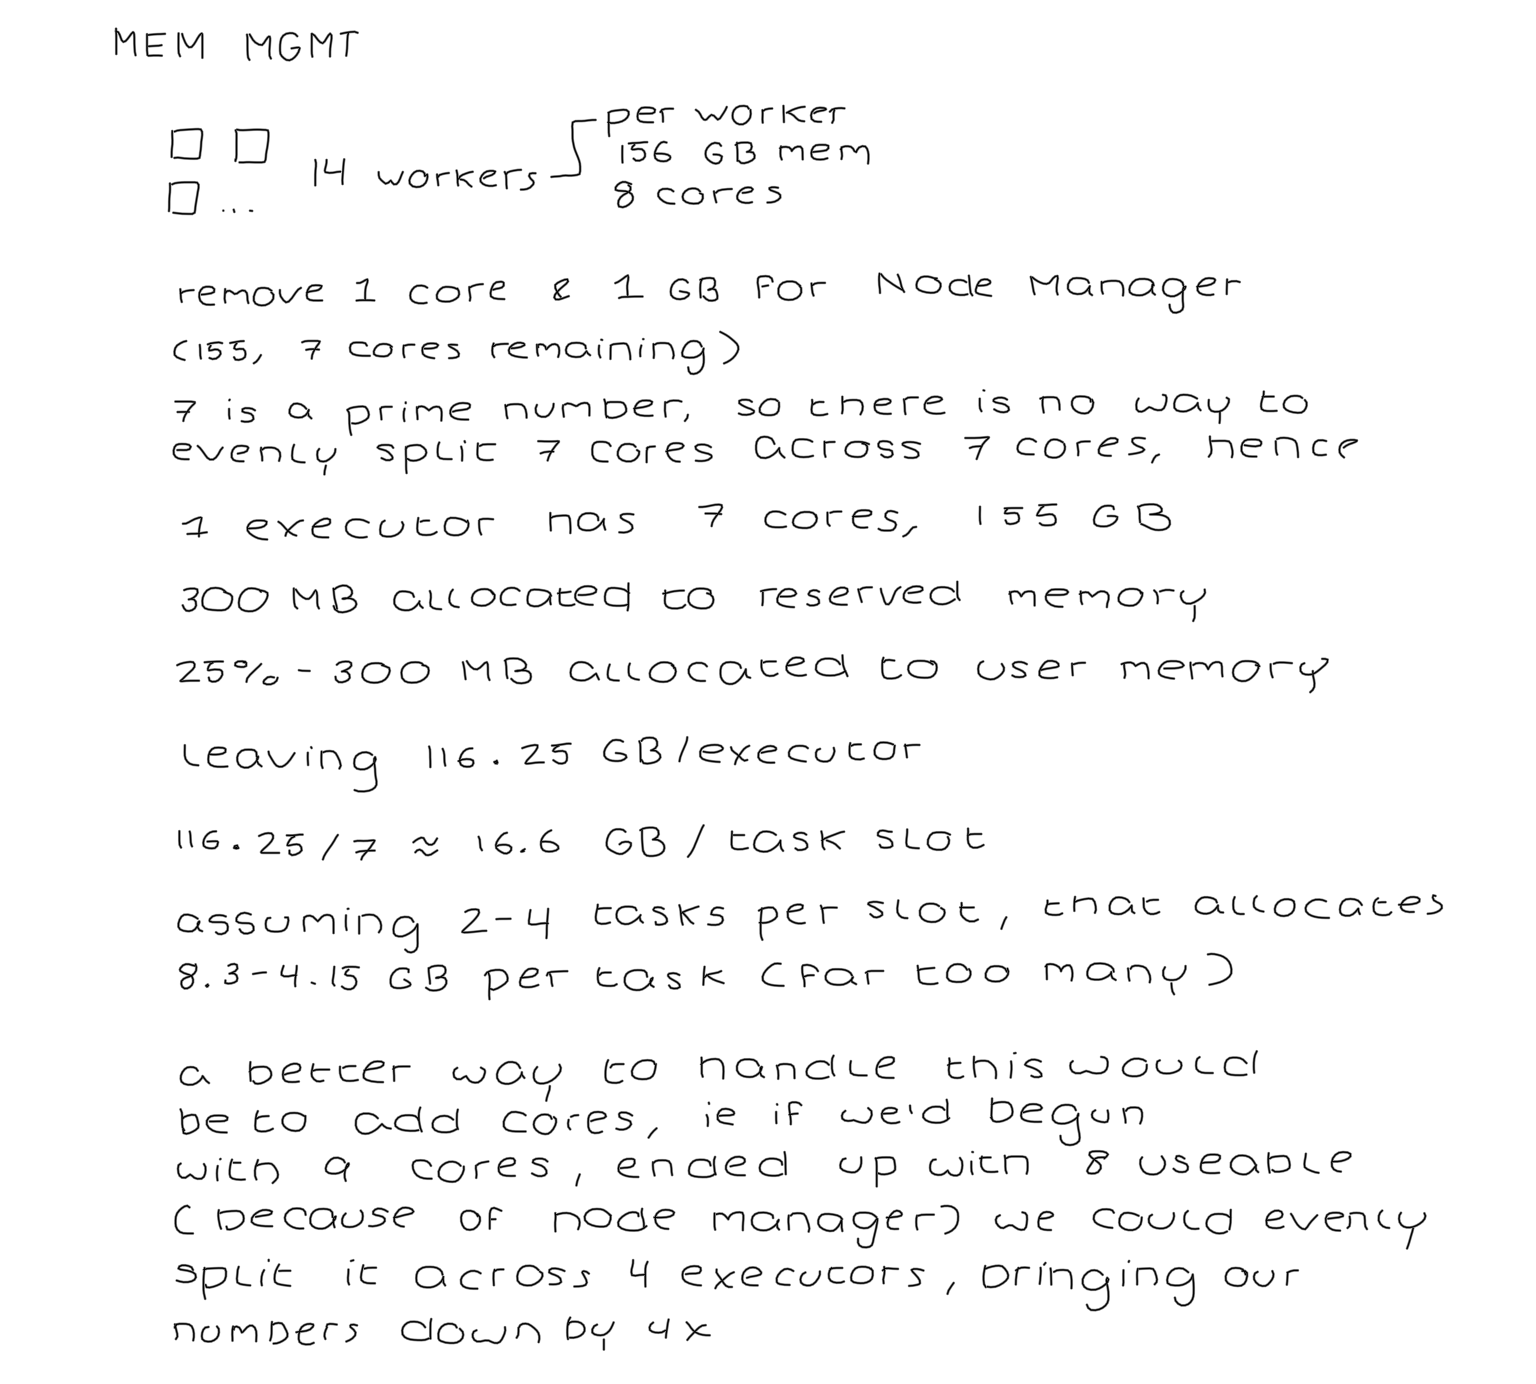 MEM MGMT
per worker
156 GB mem
14 workers
8 cores
...
remove 1 core & 1 GB for Node Manager
(155, 7 cores remaining)
7 is a prime number, so there is no way to
evenly split 7 cores across 7 cores, hence
1 executor has 7 cores, 155 GB
300 MB allocated to reserved memory
25% - 300 MB allocated to user memory
leaving 116.25 GB/executor
116.25/7 ≈ 16.6 GB / task slot
assuming 2-4 tasks per slot, that allocates
8.3-4.15 GB per task (far too many)
a better way to handle this would
be to add cores, ie if we'd begun
with 9 cores, ended up with 8 useable
(because of node manager) we could evenly
split it across 4 executors, bringing our
numbers down by 4x